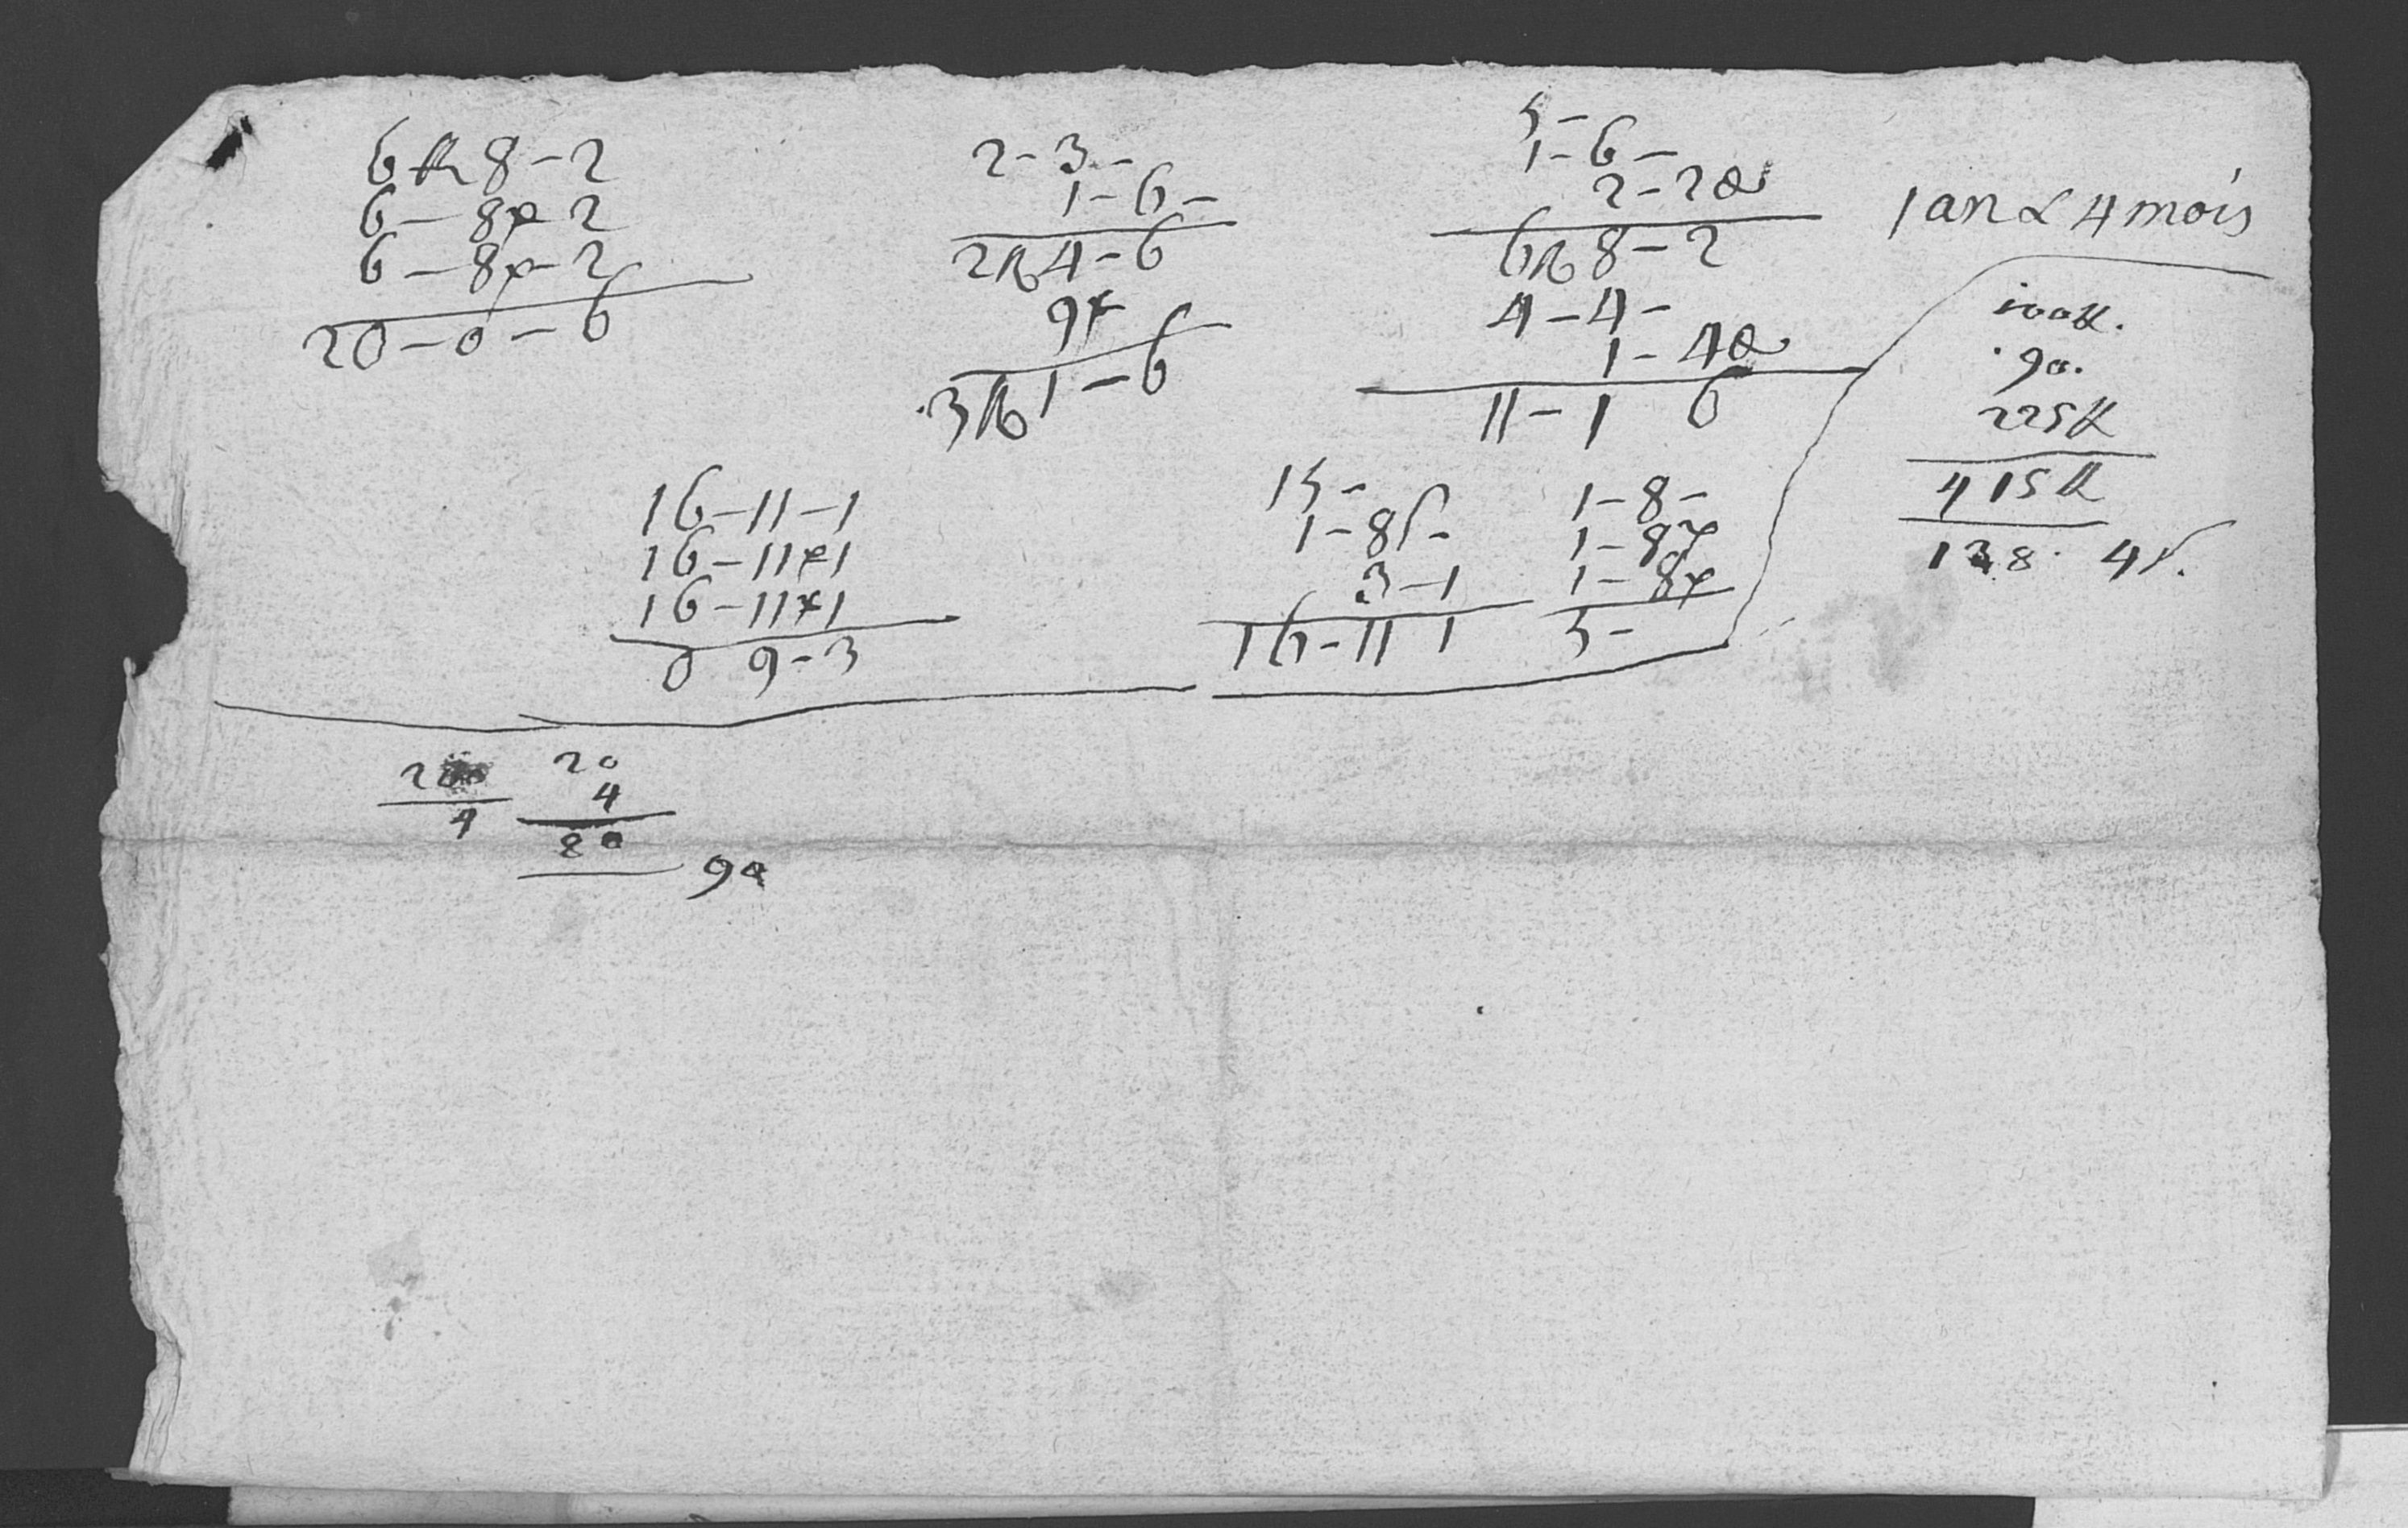 6 ₶ 8 - 2
6 - 8 - 2
6 - 8 - 2
20 - 0 - 6
2 - 3 -
1 - 6 -
2 ₶ 4 - 6
9
3 ₶ 1 - 6
5 -
1 - 6 -
2 - 2 d
6 ₶ 8 - 2
4 - 4 -
1 - 4 d
11 - 1 6
1 an & 4 mois
100 ₶.
90.
225 ₶
415 ₶
138. 4 s.
16 - 11 - 1
16 - 11 - 1
16 - 11 - 1
9 - 3
15 -
1 - 8 s -
3 - 1
16 - 11 1
1 - 8 -
1 - 8
1 - 8
5 -
4
20
4
80
90